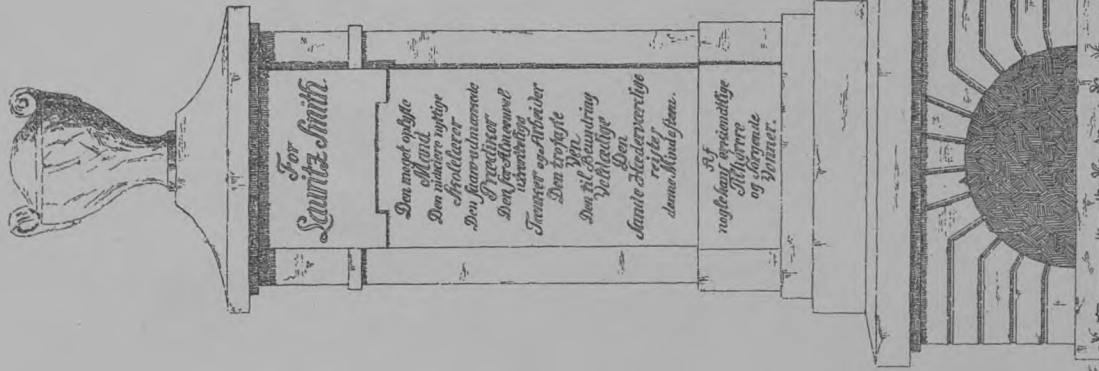 For
Lauritz Smith.
Den meget oplyste
Mand
Den nidkiere nyttige
Skolelærer
Den saare udmærkede
Prædiker
Den for Almeenvel
utrættelige
Tænker og Arbeider
Den trofaste
Ven
Den til Beundring
Veltalige
Den
Sande Hæderværdige
rejstes
denne Mindesteen.
Af
nogle haus erkiendtlige
Tilhørere
og sørgende
Venner.